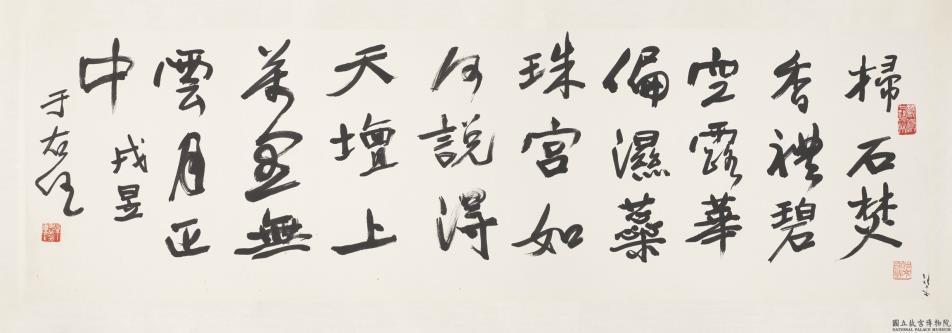 掃石焚
香禮碧
空露華
偏濕蘂
珠宮如
何說得
天壇上
萬里無
雲月正
中
戌昱
于右任
國立故宮博物院
NATIONAL PALACE MUSEUM